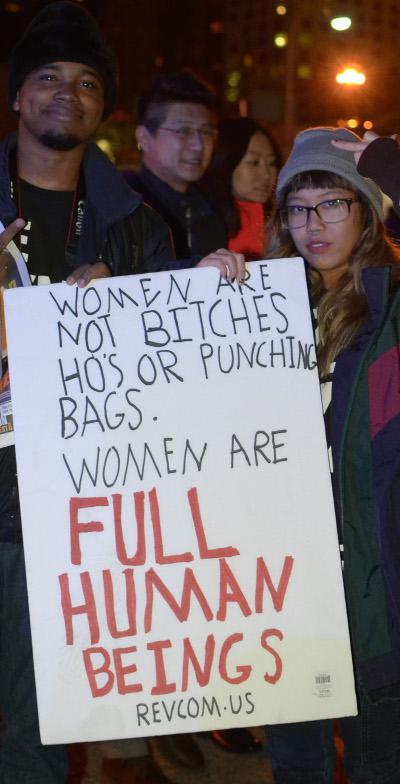 WOMEN ARE
NOT BITCHES
HO'S OR PUNCHING
BAGS.
WOMEN ARE
FULL
HUMAN
BEINGS
REVCOM.US
Canon